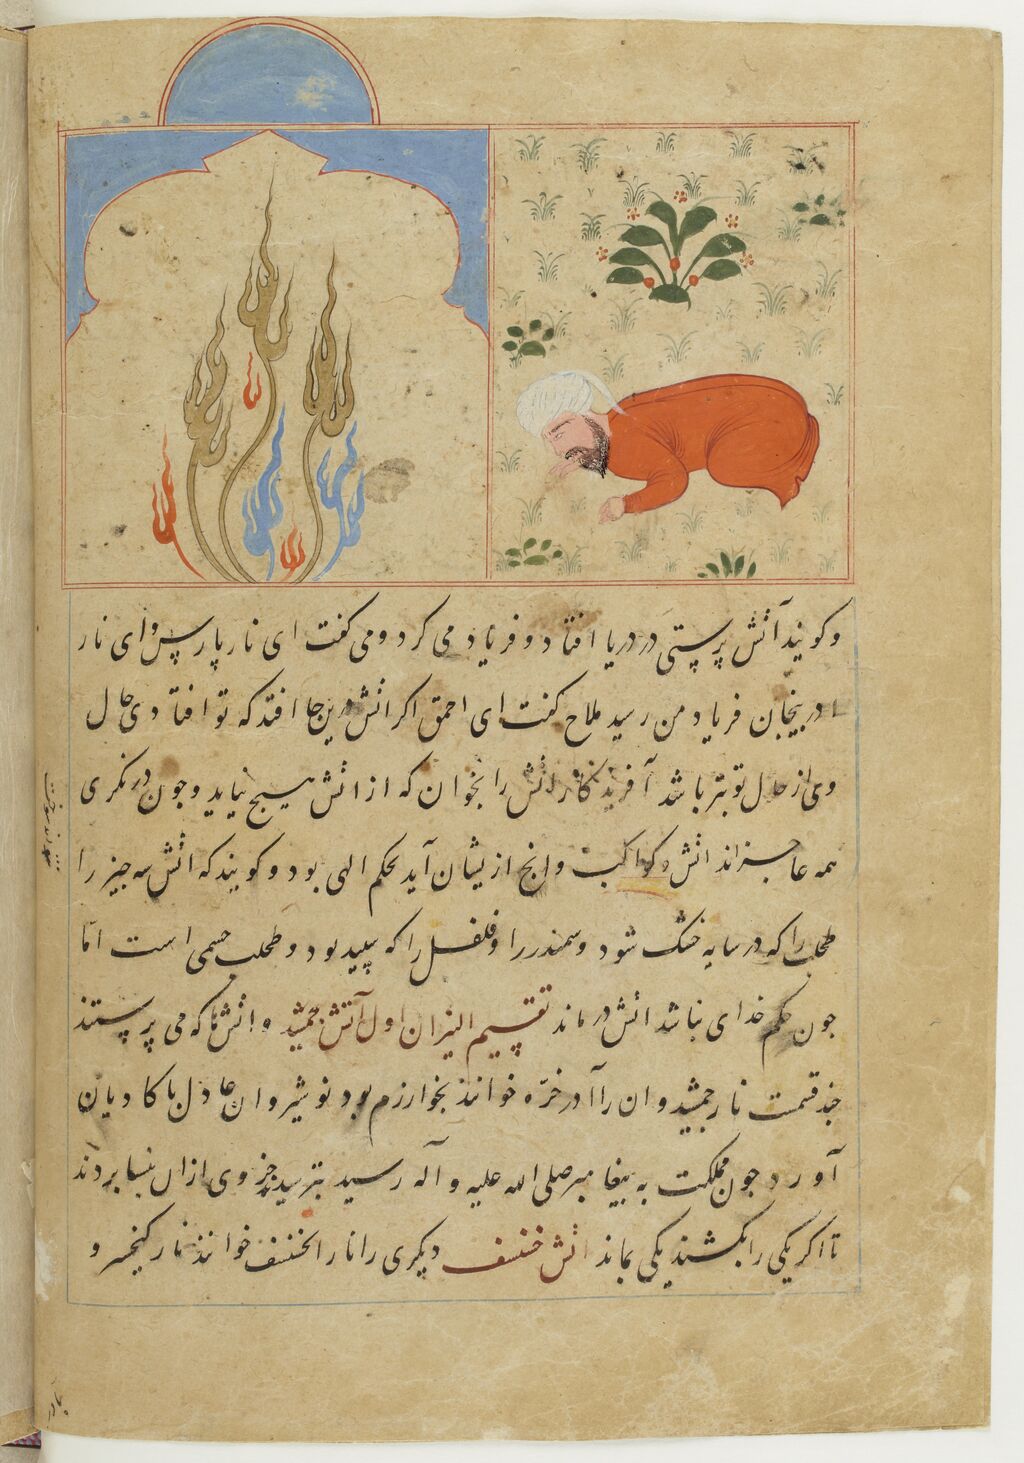 وکویند آتش پرستی در دریا افتاد و فریاد می کرد و می کفت ای نار پارس و ای نار
فریاد من رسید ملاح کفت ای احمق اکر اتش درین جا افتد که تو افتادی حال
وی از حال تو بتر باشد آفریننده اتش را بخوان که از اتش هیچ نیاید وجون در نکری
همه عاجزاند اتش و کواکب وانج ازیشان آید بحکم الهی بود و کویند که اتش سه جیز را
طحلب را که در سایه خشک شود و سمندر را و فلفل را که سپید بود و طحلب جسمی است اما
جون حکم خدای نباشد اتش درماند تقسیم النیران اول آتش جمشید و اتشها که می پرستند
جند قسمت نار جمشید و ان را آدر خره خوانند بخوارزم بود نوشیروان عادل با کادیان
آورد جون مملکت به پیغامبر صلی الله علیه و آله رسید بترسید جزوی ازان بنسا بردند
تا اکر یکی را بکشند یکی بماند اتش خنسف دیکری را نار الخنسف خوانند نار کیخسرو
نتواند سوخت